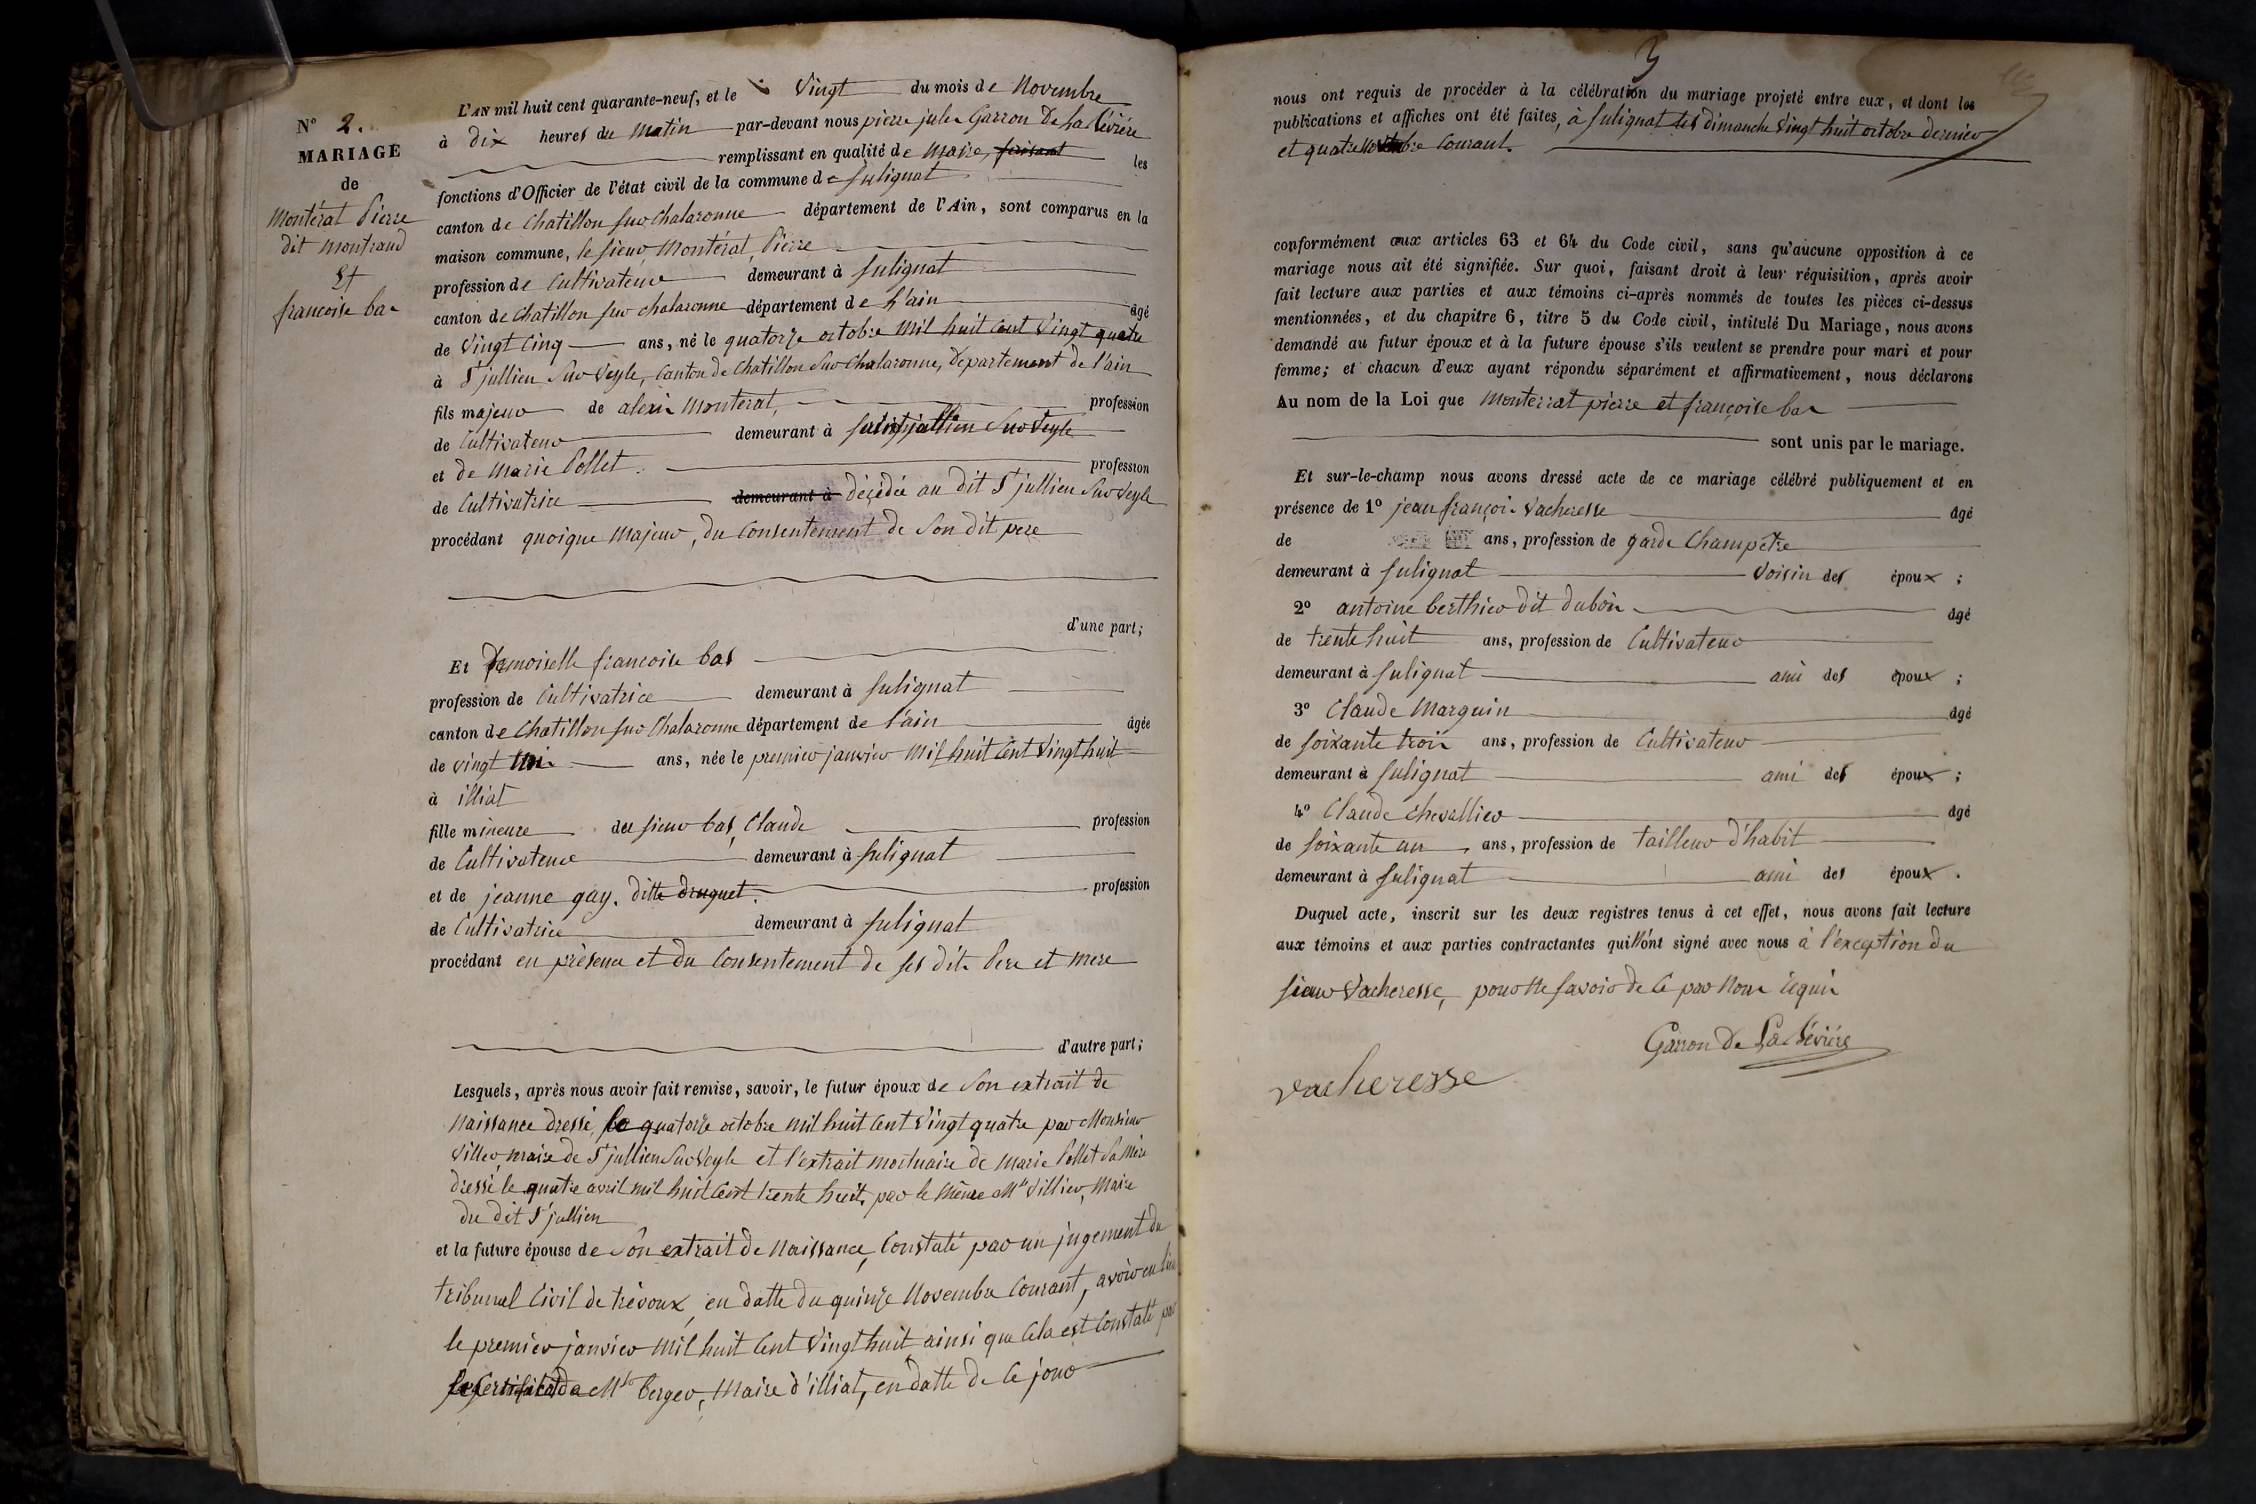 N° 2.
MARIAGE
de
Montérat Pierre
dit montrand
Et
francoise bas
L'AN mil huit cent quarante-neuf, et le Vingt du mois de Novembre
à dix heures du Matin par-devant nous pierre jules Garron De La Bévière
remplissant en qualité de Maire, faisant les
fonctions d'Officier de l'état civil de la commune de Sulignat
canton de Chatillon sur Chalaronne département de l'Ain, sont comparus en la
maison commune, le sieur Montérat, Pierre
profession de Cultivateur demeurant à Sulignat
canton de Chatillon sur chalaronne département de L'ain âgé
de Vingt Cinq ans, né le quatorze octobre Mil huit Cent Vingt quatre
à St jullien Sur Veyle, Canton de Chatillon Sur Chalaronne, Département de l'ain
fils majeur de alexis Monterat, profession
de Cultivateur demeurant à saint jullien Sur Veyle
et de Marie Pollet. profession
de Cultivatrice demeurant à décédée au dit St jullien Sur Veyle
procédant quoique Majeur, du Consentement de Son dit pere
d'une part;
Et Demoiselle francoise bas
profession de Cultivatrice demeurant à Sulignat
canton de Chatillon sur Chalaronne département de l'ain âgée
de vingt un ans, née le premier janvier Mil huit Cent Vingt huit
à illiat
fille mineure du sieur bas, Claude profession
de Cultivateur demeurant à Sulignat
et de jeanne gay. ditte druguet. profession
de Cultivatrice demeurant à Sulignat
procédant en présence et du Consentement de ses dits Pere et mere
d'autre part;
Lesquels, après nous avoir fait remise, savoir, le futur époux de Son extrait de
Naissance dressé, le quatorze octobre mil huit Cent Vingt quatre par Monsieur
Villier, maire de St jullien Sur Veyle et l'extrait mortuaire de Marie Pollet Sa Mère
dressé le quatre avril mil huit Cent trente huit, par le Même Mr Villier, Maire
du dit St jullien
et la future épouse de Son extrait de Naissance, Constaté par un jugement du
tribunal Civil de trévoux, en datte du quinze Novembre Courant, avoir eu lieu
le premier janvier Mil huit Cent Vingt huit ainsi que Cela est Constaté par
le Certificat de Mr berger, Maire d'illiat, en datte de Ce jour
3
nous ont requis de procéder à la célébration du mariage projeté entre eux, et dont les
publications et affiches ont été faites, à Sulignat les dimanche Vingt huit octobre dernier
et quatre Novembre Courant.
conformément aux articles 63 et 64 du Code civil, sans qu'aucune opposition à ce
mariage nous ait été signifiée. Sur quoi, faisant droit à leur réquisition, après avoir
fait lecture aux parties et aux témoins ci-après nommés de toutes les pièces ci-dessus
mentionnées, et du chapitre 6, titre 5 du Code civil, intitulé Du Mariage, nous avons
demandé au futur époux et à la future épouse s'ils veulent se prendre pour mari et pour
femme; et chacun d'eux ayant répondu séparément et affirmativement, nous déclarons
Au nom de la Loi que Monterrat pierre et françoise bas
sont unis par le mariage.
Et sur-le-champ nous avons dressé acte de ce mariage célébré publiquement et en
présence de 1° jean françois Vacheresse âgé
de ans, profession de garde Champêtre
demeurant à Sulignat Voisin des époux ;
2° antoine berthier dit dubois âgé
de trente huit ans, profession de Cultivateur
demeurant à Sulignat ami des époux ;
3° Claude Marguin âgé
de soixante trois ans, profession de Cultivateur
demeurant à Sulignat ami des époux ;
4° Claude chevallier âgé
de soixante un ans, profession de tailleur d'habit
demeurant à Sulignat ami des époux .
Duquel acte, inscrit sur les deux registres tenus à cet effet, nous avons fait lecture
aux témoins et aux parties contractantes qui n'ont signé avec nous à l'exception du
sieur Vacheresse, pour Ne savoir de Ce par Nous requis
Garron De La Bévière
vacheresse